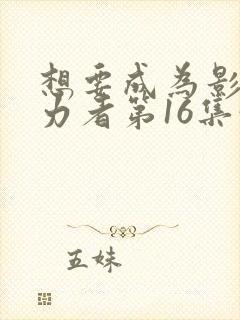 想要成为影
力者第16集
五妹